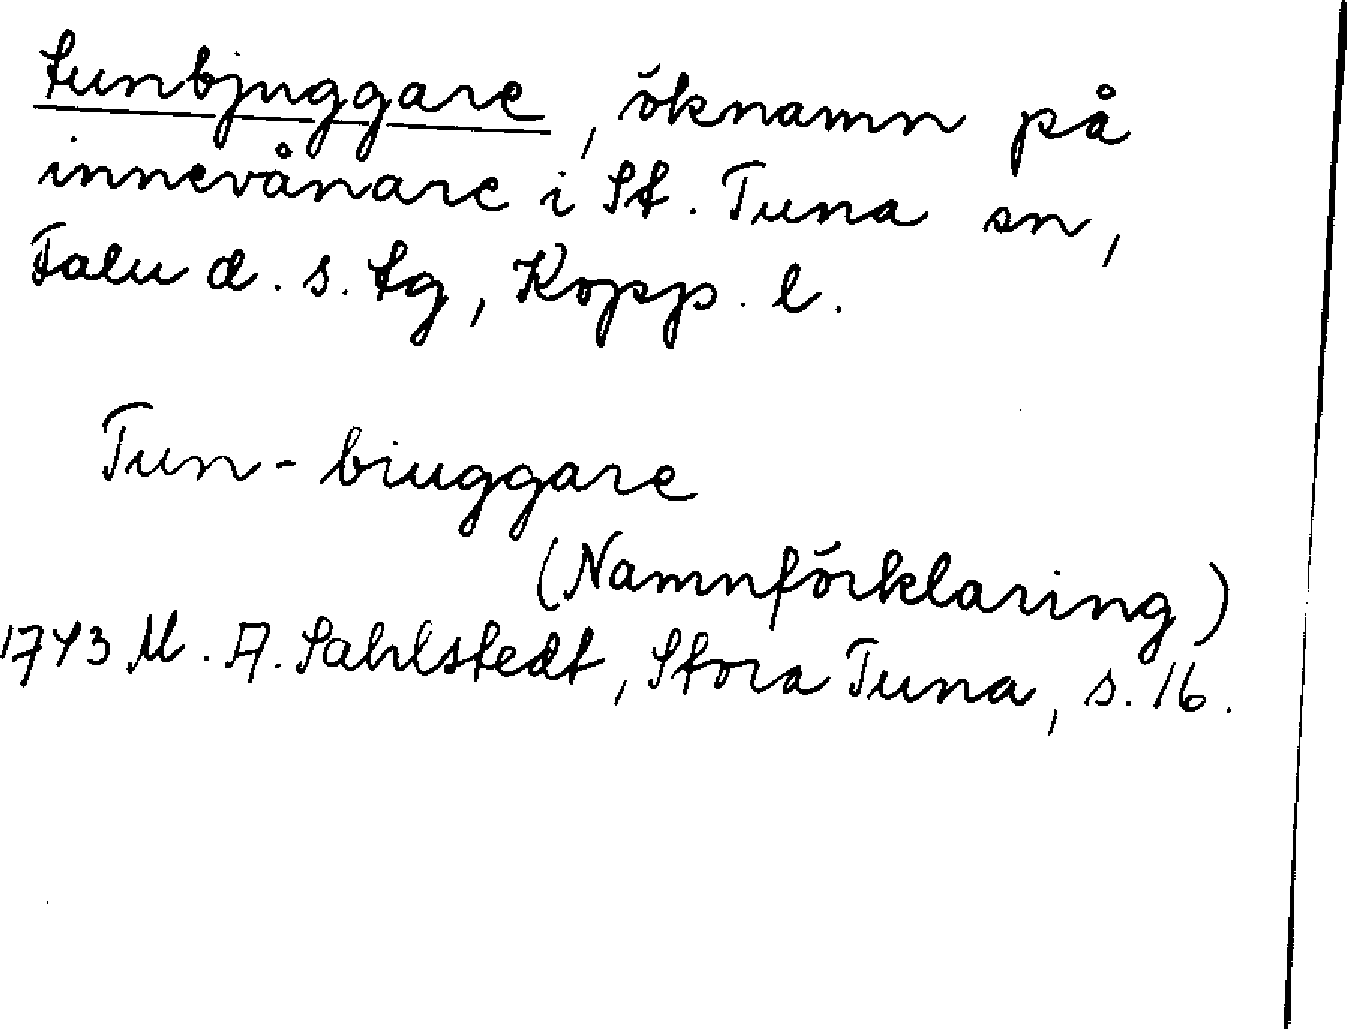 tunbjuggare, öknamn på
innevånare i St. Tuna sn,
Falu d. s. tg, Kopp. l.
Tun-biuggare
(Namnförklaring)
1743 M. A. Sahlstedt, Stora Tuna, s. 16.